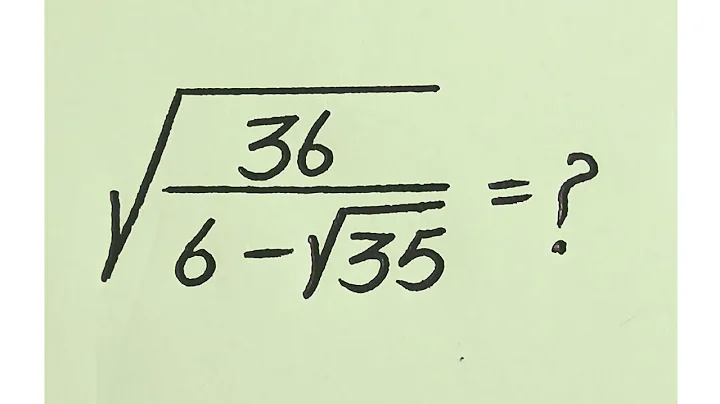 √(36 / (6 − √35)) = ?